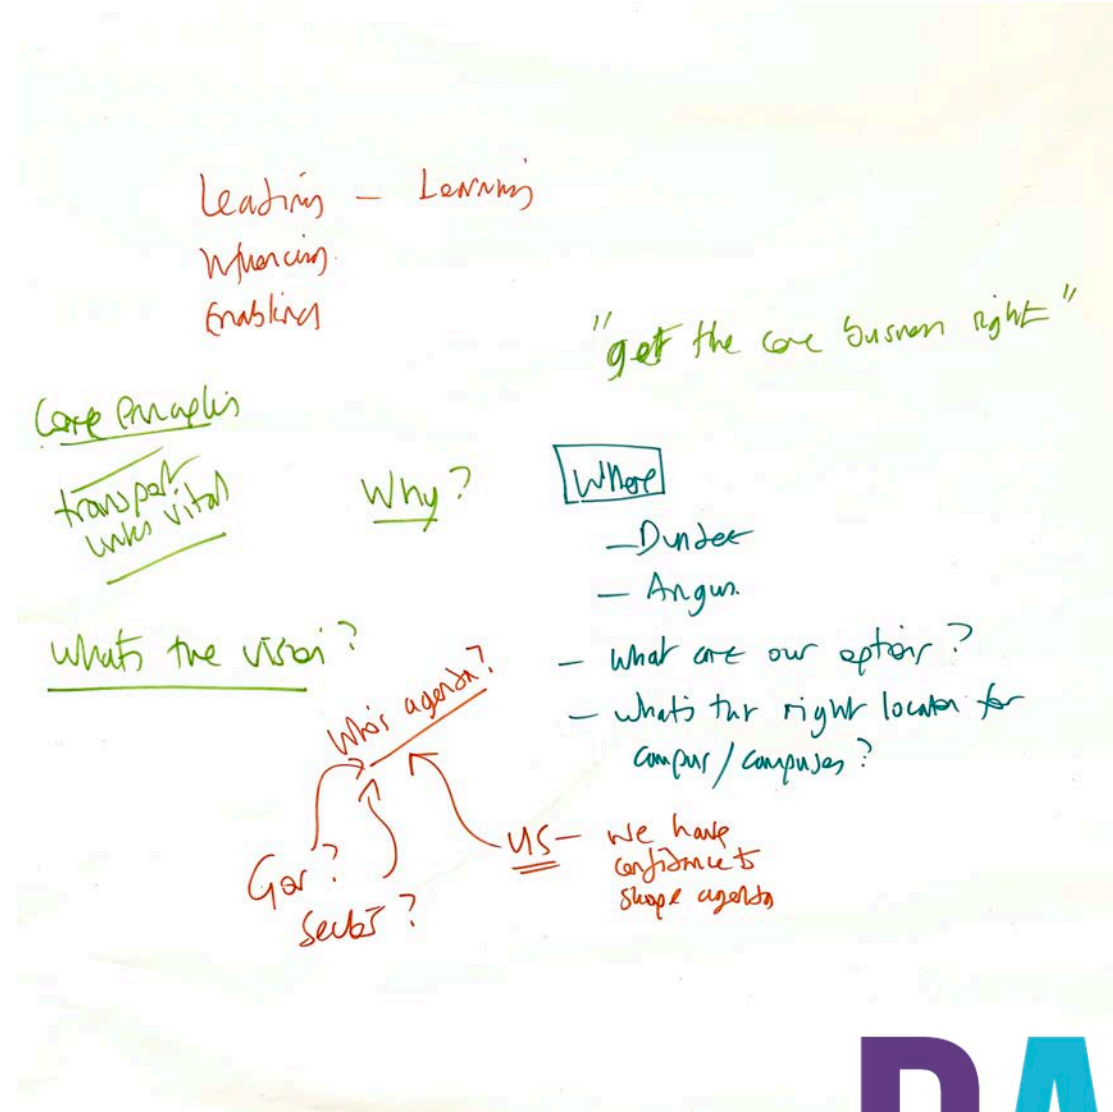 Leading - Learning
Influencing.
Enabling
"get the core business right"
Core Principles
transport
links vital
Why?
Where
- Dundee
- Angus.
What's the vision?
- What are our options?
- What's the right location for
campus/campuses?
Who's agenda?
Gov?
Sector?
US - We have
confidence to
shape agenda
DA